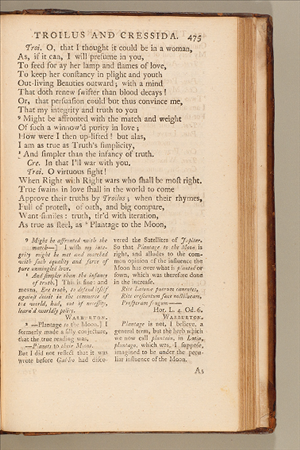 TROILUS AND CRESSIDA. 475
Troi. O, that I thought it could be in a woman,
As, if it can, I will presume in you,
To feed for ay her lamp and flames of love,
To keep her constancy in plight and youth
Out-living Beauties outward; with a mind
That doth renew swifter than blood decays!
Or, that persuasion could but thus convince me,
That my integrity and truth to you
⁹ Might be affronted with the match and weight
Of such a winnow'd purity in love;
How were I then up-lifted! but alas,
I am as true as Truth's simplicity,
¹ And simpler than the infancy of truth.
Cre. In that I'll war with you.
Troi. O virtuous fight!
When Right with Right wars who shall be most right.
True swains in love shall in the world to come
Approve their truths by Troilus; when their rhymes,
Full of protest, of oath, and big compare,
Want similes: truth, tir'd with iteration,
As true as steel, as ² Plantage to the Moon,
⁹ Might be affronted with the
match—] I wish my inte-
grity might be met and matched
with such equality and force of
pure unmingled love.
¹ And simpler than the infance
of truth.] This is fine: and
means, Ere truth, to defend itself
against deceit in the commerce of
the world, had, out of necessity,
learn'd worldly policy.
WARBURTON.
² —Plantage to the Moon.] I
formerly made a silly conjecture,
that the true reading was,
—Planets to their Moons.
But I did not reflect that it was
wrote before Galileo had disco-
vered the Satellites of Jupiter.
So that Plantage to the Moon is
right, and alludes to the com-
mon opinion of the influence the
Moon has over what is planted or
sown, which was therefore done
in the increase.
Rite Latonæ puerum canentes,
Rite crescentem face noctilucam,
Prosperam frugum——
Hor. L. 4. Od. 6.
WARBURTON.
Plantage is not, I believe, a
general term, but the herb which
we now call plantain, in Latin,
plantago, which was, I suppose,
imagined to be under the pecu-
liar influence of the Moon.
As